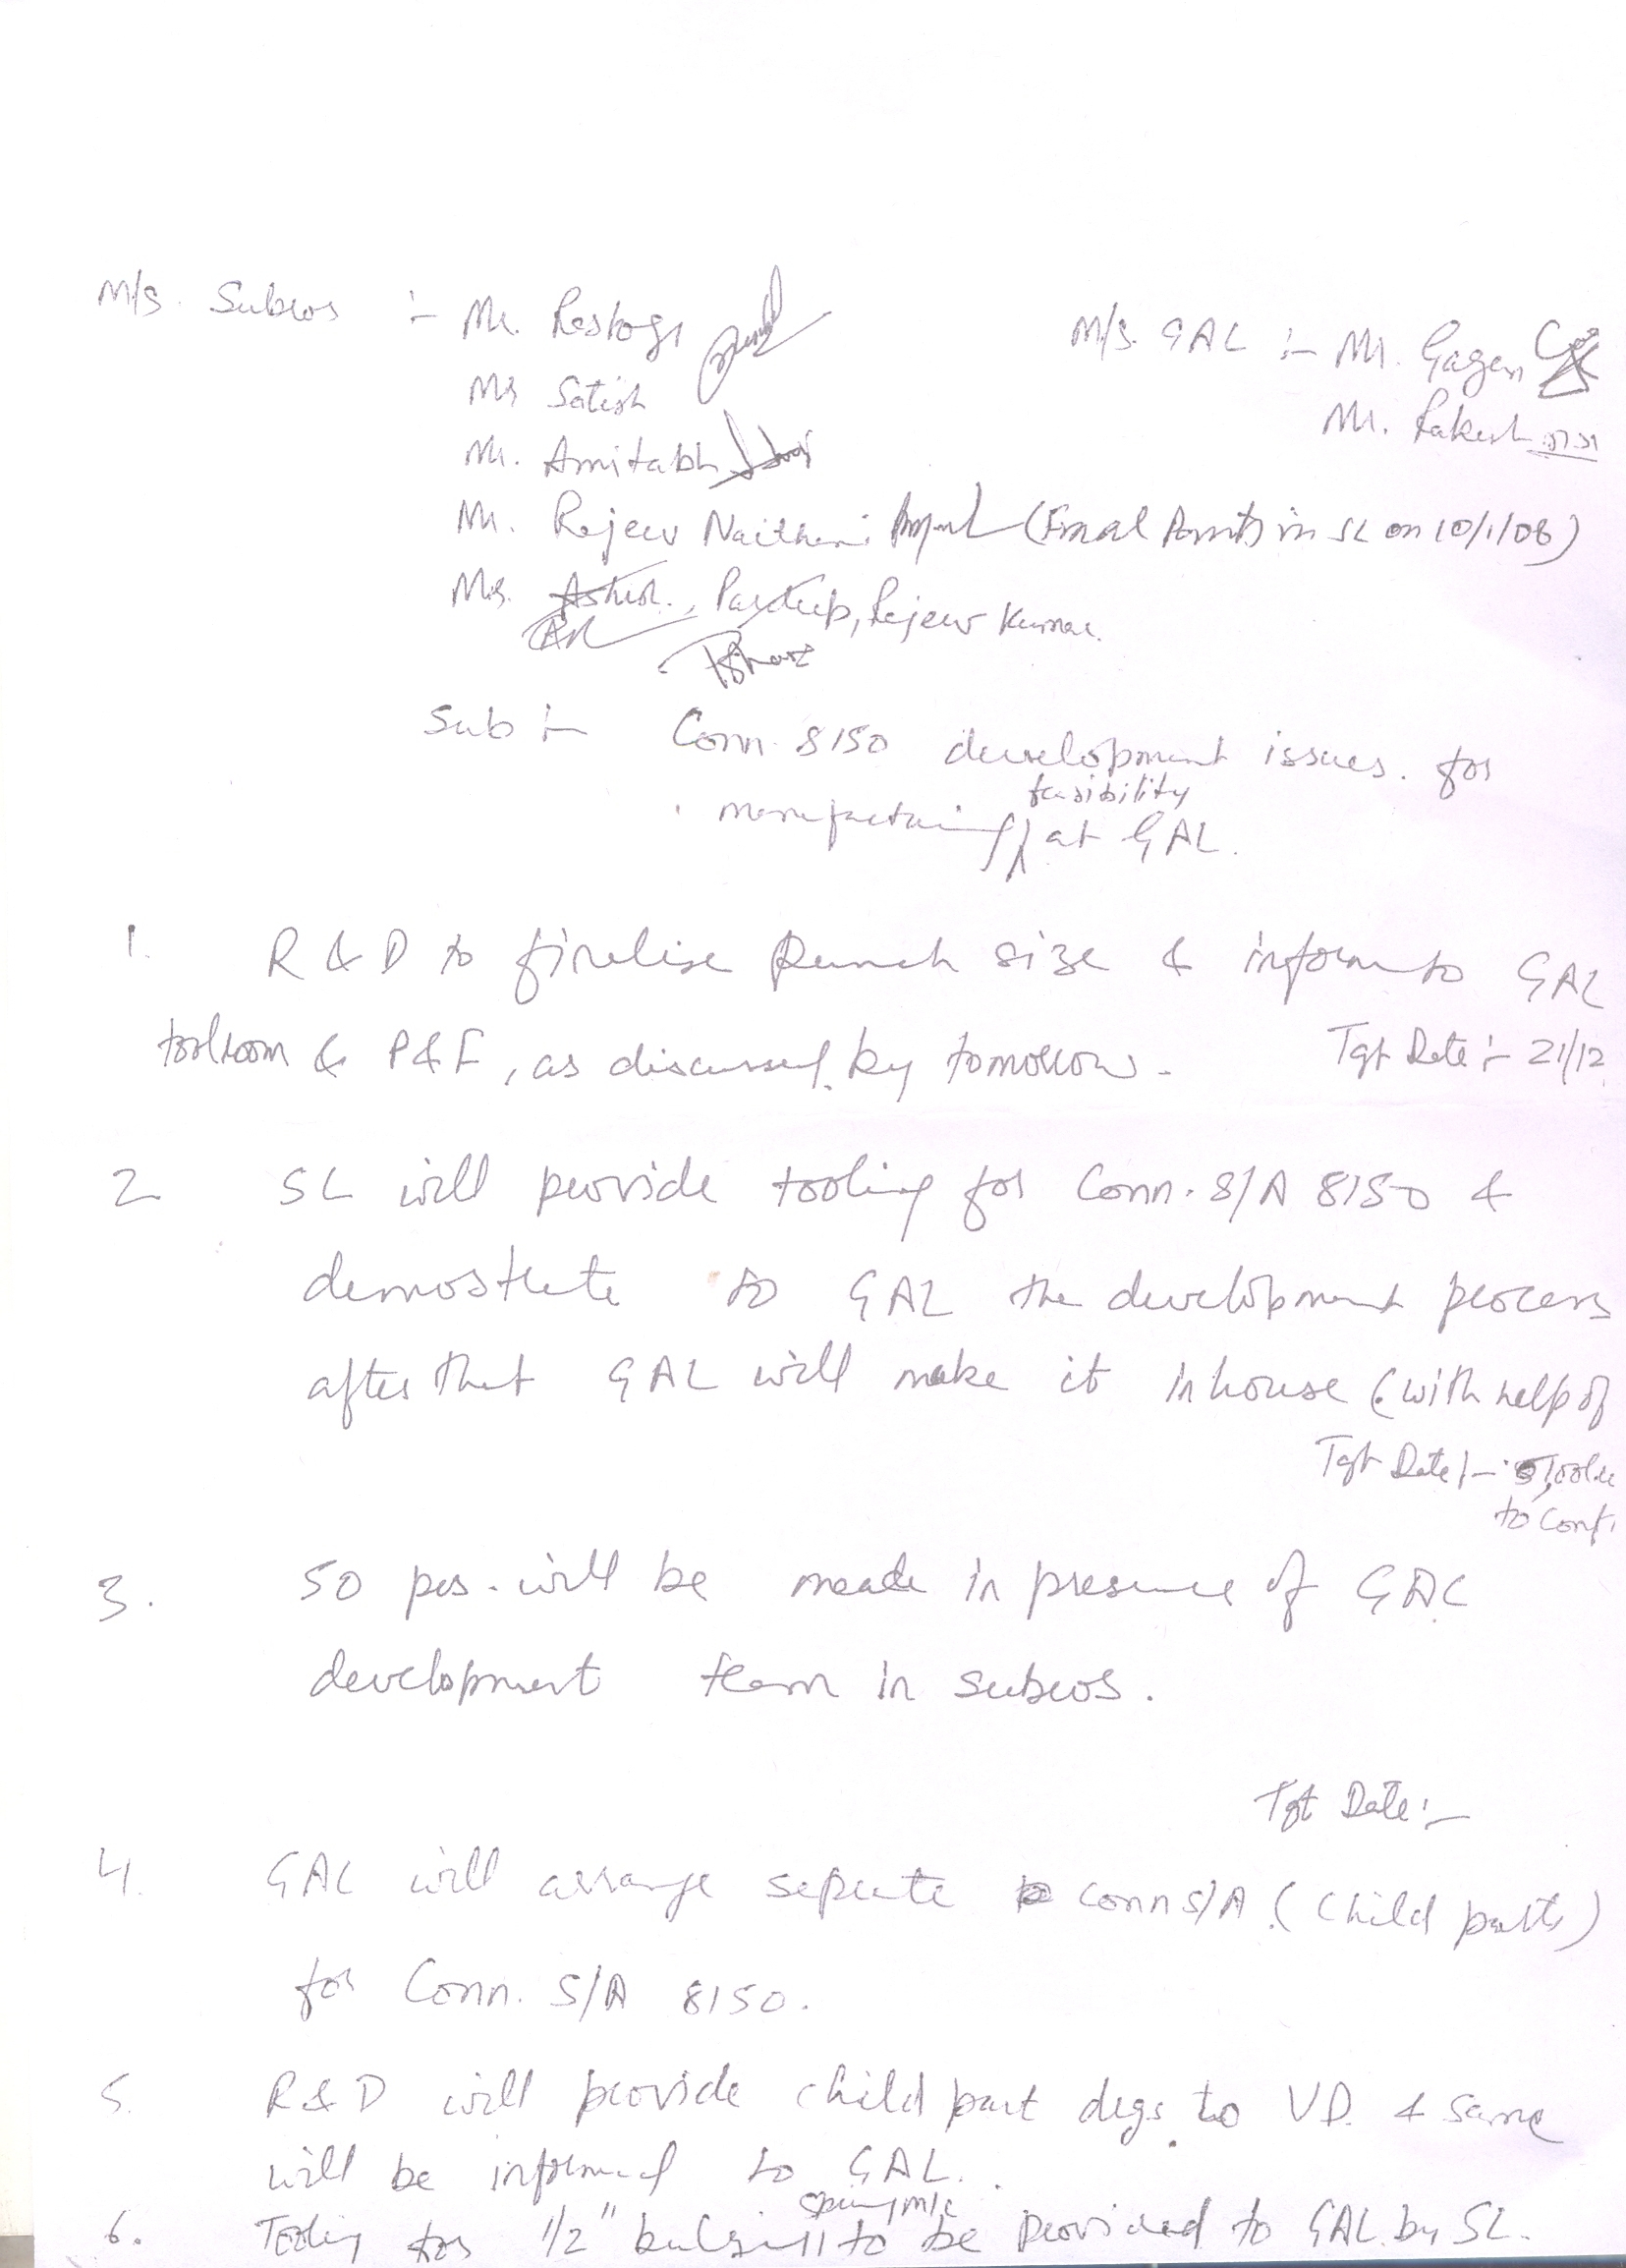 M/S. Subros :- Mr. Rastogi M/S. GAL :- Mr. Gagan
Mr Satish Mr. Rakesh
Mr. Amitabh
Mr. Rajeev Naithani (Final Points in SL on 10/1/08)
Mrs. Ashok., Pardeep, Rajeev Kumar.
Sub :- Conn. 8150 development issues. for
manufacturing feasibility at GAL.
1. R & D to finelise Punch size & inform to GAL
toolroom & P&E, as discussed by tomorrow. Tgt Date :- 21/12
2 SL will provide tooling for Conn. S/A 8150 &
demostrate to GAL the development process
after that GAL will make it in house (with help of
Tgt Date :-
to conf.
3. 50 pcs. will be made in presence of GAL
development team in subros.
Tgt Date :-
4. GAL will arrange seprate conn S/A (child parts)
for Conn. S/A 8150.
5. R&D will provide child part drgs. to VD. & same
will be informed to GAL.
6. Tooling for 1/2" bulging m/c to be provided to GAL by SL.